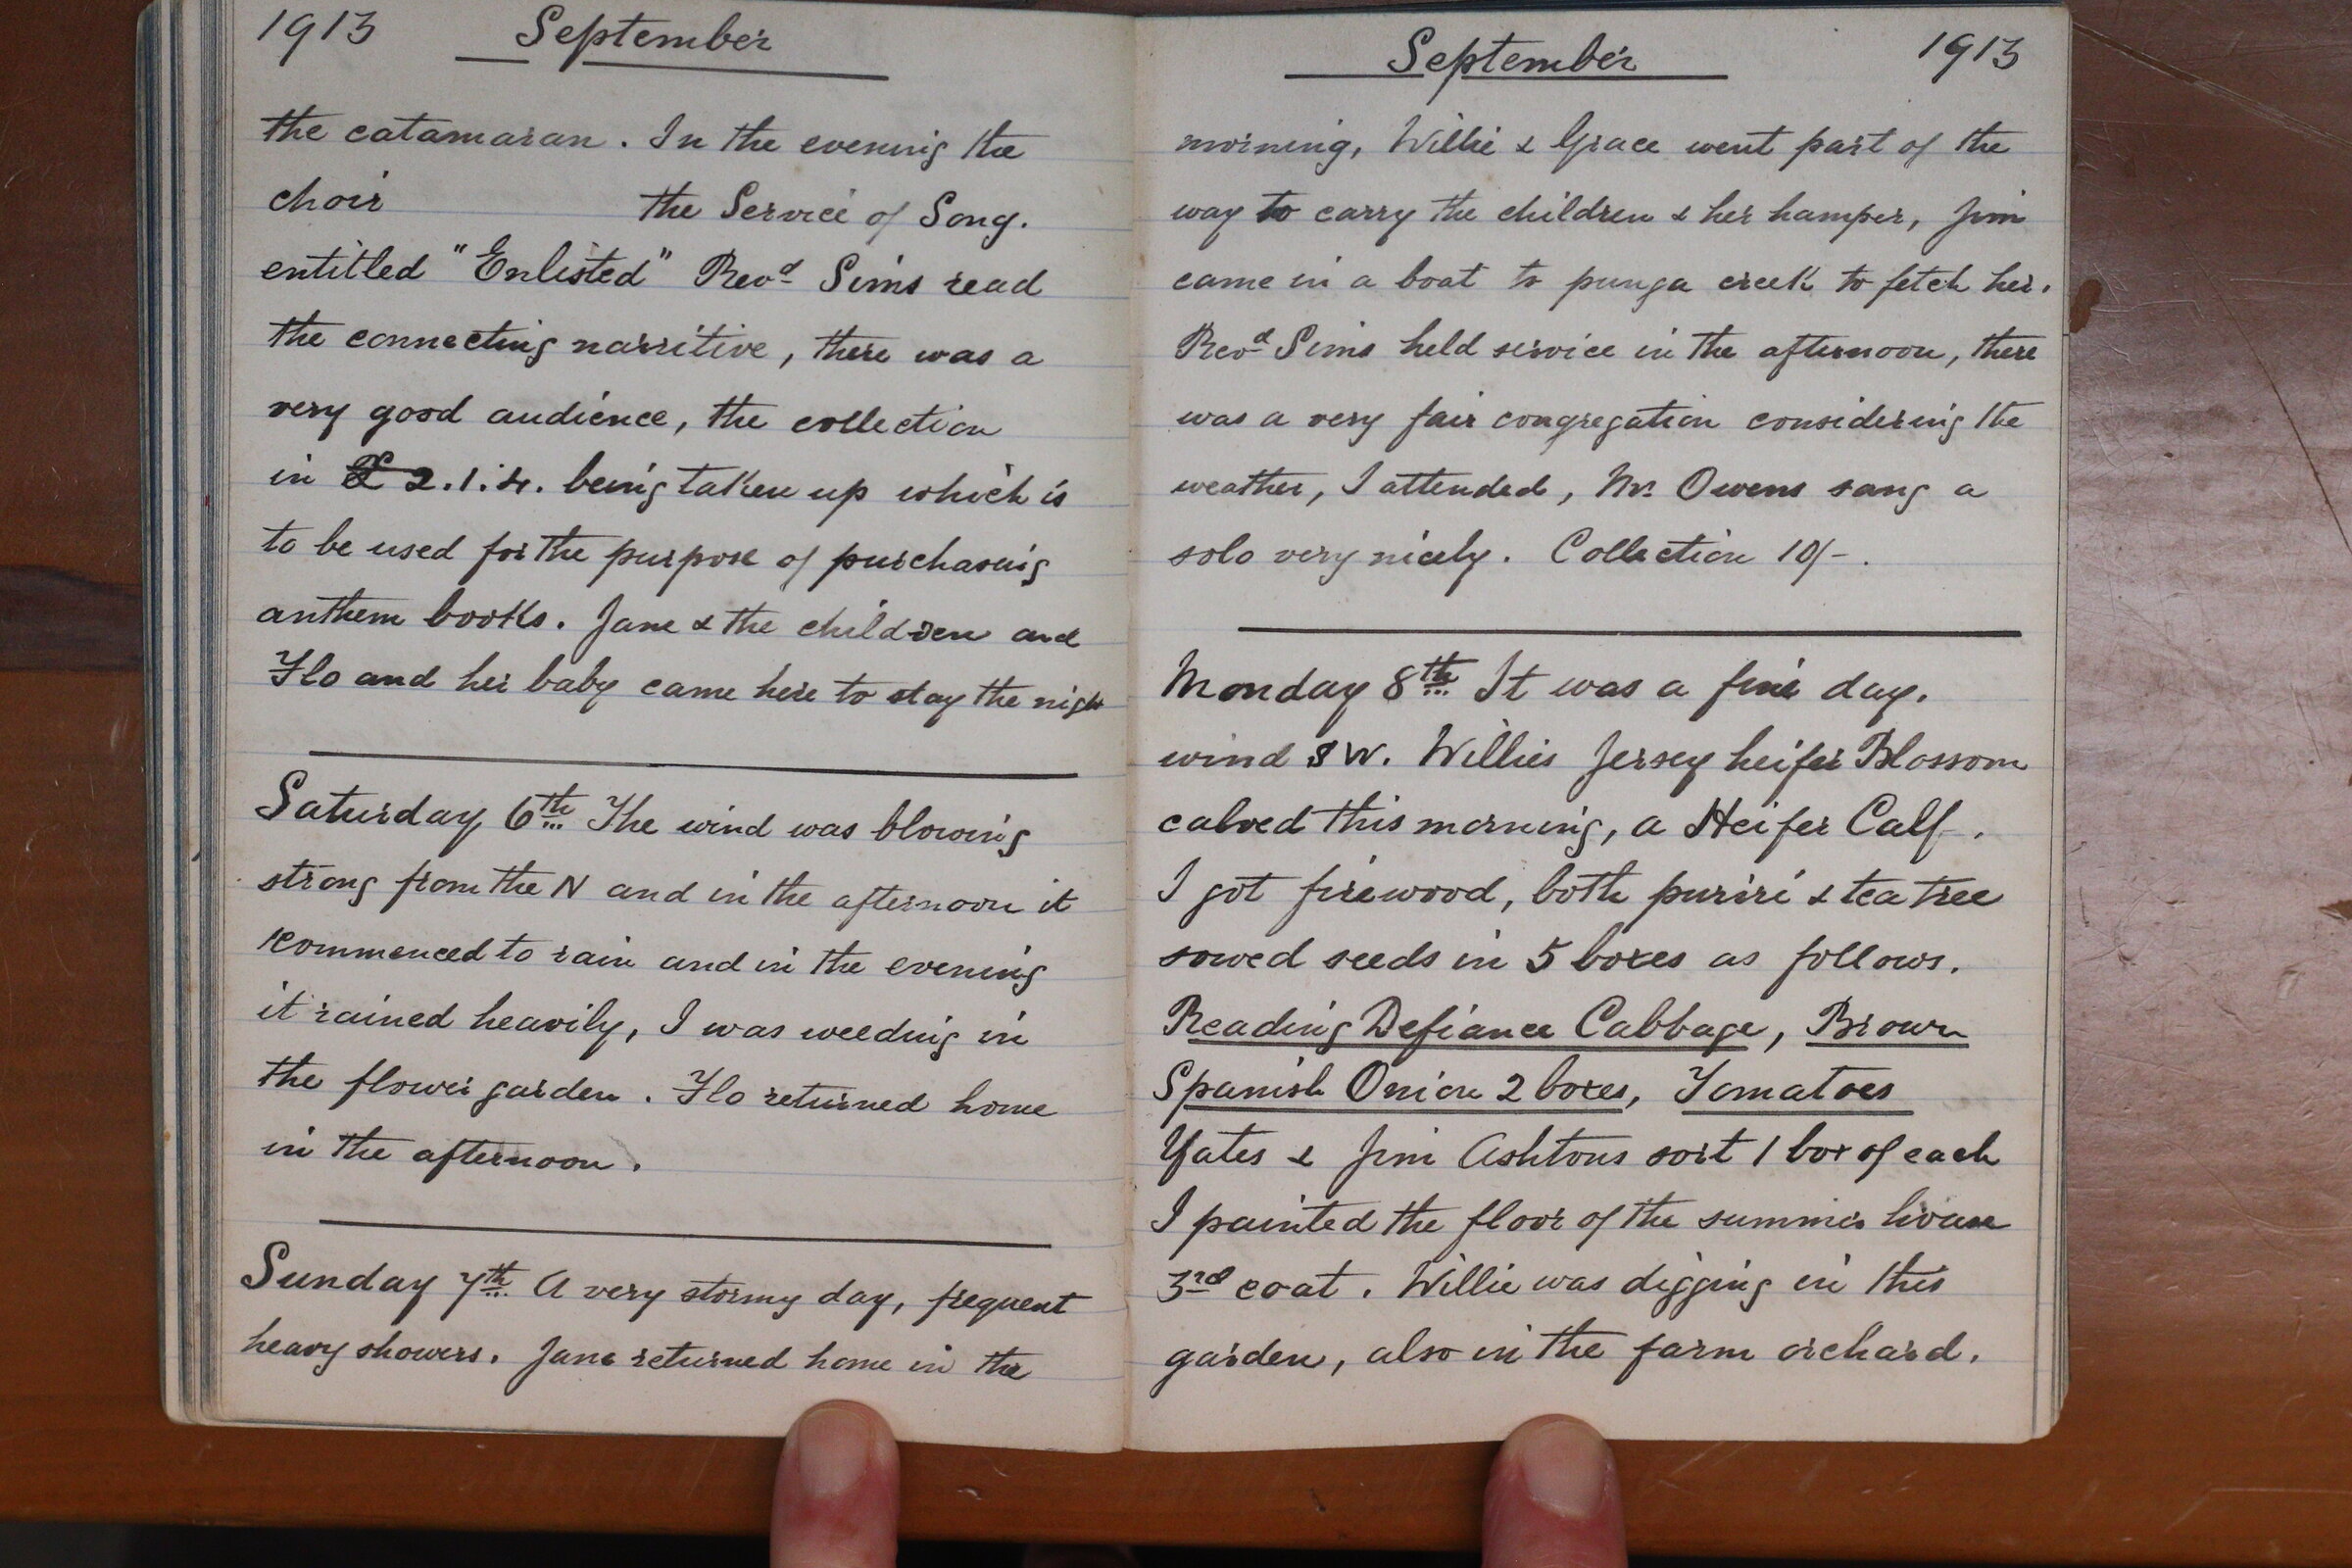 1913 September
the catamaran. In the evening the
choir the Service of Song.
entitled "Enlisted" Revd Sims read
the connecting narritive, there was a
very good audience, the collection
in £2.1.4. being taken up which is
to be used for the purpose of purchasing
anthem books. Jane & the children and
Flo and her baby came here to stay the night
Saturday 6th The wind was blowing
strong from the N and in the afternoon it
commenced to rain and in the evening
it rained heavily, I was weeding in
the flower garden. Flo returned home
in the afternoon.
Sunday 7th A very stormy day, frequent
heavy showers. Jane returned home in the
September 1913
morning, Willie & Grace went part of the
way to carry the children & her hamper, Jim
came in a boat to punga creek to fetch her.
Revd Sims held service in the afternoon, there
was a very fair congregation considering the
weather, I attended, Mr. Owens sang a
solo very nicely. Collection 10/-.
Monday 8th It was a fine day.
wind SW. Willies Jersey heifer Blossom
calved this morning, a Heifer Calf.
I got firewood, both puriri & tea tree
sowed seeds in 5 boxes as follows.
Reading Defiance Cabbage, Brown
Spanish Onion 2 boxes, Tomatoes
Yates & Jim Ashtons sort 1 box of each
I painted the floor of the summer house
3rd coat. Willie was digging in this
garden, also in the farm orchard.